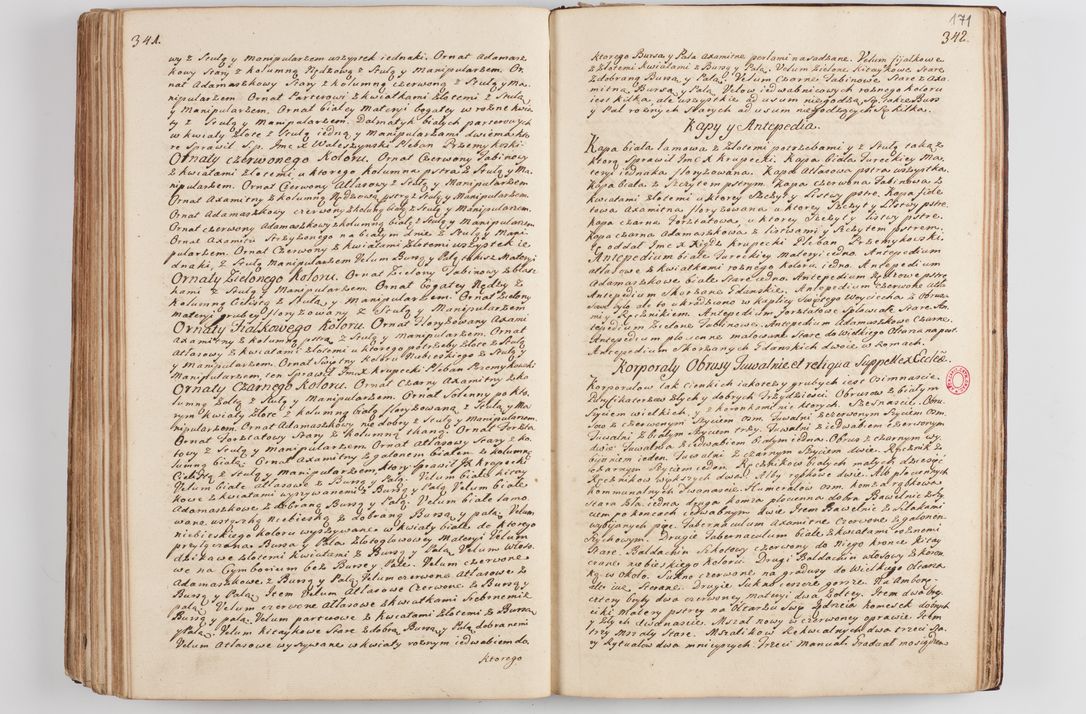 341.
wy z Stułą y Manipularzem wszystek iednaki. Ornat Adamasz
kowy stary z kolumną Nędzową z Stułą y Manipularzem. Or
nat Adamaszkowy stary z kolumną czerwoną z Stułą y Ma,
nipularzem. Ornat Parterowi z kwiatkami złotemi z Stułą
y Manipularzem. Ornat białey Materyi bogatey w rożne kwia
ty z Stułą y Manipularzem. Dalmatyk białych parterowych
w kwiaty złote z Stułą iedną y Manipularzami dwiema, kto
re Sprawił S.p. Imć X Waleszynski Pleban Przemykoski.
Ornaty czerwonego Koloru. Ornat Czerwony Tabinowy
z kwiatami złotemi, u ktorego kolumna pstra z Stułą y Ma,
nipularzem. Ornat Czerwony Atłasowy z Stułą y Manipularzem
Ornat Axamitny z kolumną Rędzową pstrą z Stułą y Manipularzem.
Ornat Adamaszkowy czerwony z kolumną białą z Stułą y Manipularzem.
Ornat czerwony Adamaszkowy z kolumną białą z Stułą y Manipularzem
Ornat Axamitu Strzyżonego na białym dnie z Stułą y Mani
pularzem. Ornat Czerwony z kwiatami złotemi wszystek ie
dnaki, z Stułą Manipularzem Velum Bursą y Palą tak iż Materyi
Ornaty Zielonego Koloru. Ornat Zielony Tabinowy z blasz
kami z Stułą y Manipularzem. Ornat bogatey
kolumną Cielistą z Stułą y Manipularzem. Ornat Zielony
materyi grubey floryzowany z Stułą y Manipularzem
Ornaty Fiałkowego Koloru. Ornat florÿzowany Axami
Axamitny z kolumną pstrą z Stułą y Manipularzem. Ornat
Atłasowy z kwiatami złotemi u ktorego potrzeby złote z Stułą
y Manipularzem. Ornat Swiętny koloru Niebieskiego z Stułą y
Manipularzem, ten Sprawił Imć X Krupecki Pleban Przemykowski
Ornaty Czarnego Koloru. Ornat Czarny Axamitny z ko
lumną żołtą z Stułą y Manipularzem. Ornat Solenny po kto,
rym kwiaty złote z kolumną białą florÿzowaną z Stułą y Ma
nipularzem. Ornat Adamaszkowy nie dobry z Stułą y Manipularzem.
Ornat Forsztatowy Stary z kolumną tkaną. Ornat Forszta
towy z Stułą y Manipularzem. Ornat Atłasowy Stary z ko,
lumną białą. Ornat Axamitny z galonem białem z kolumną
Cielistą z Stułą y Manipularzem, ktory sprawił JX Krupecki
Velum białe Atłasowe z Bursą y Palą. Velum białe kitay
kowe z kwiatami wyszywanemi z Bursą y Palą Velum białe
Adamaszkowe z dobraną Bursą y Palą. Velum białe lamo
wane wstążką niebieską z dobraną Bursą y palą. Velum
niebieskiego koloru wyszywane w kwiaty białe do ktorego
przyłączona Bursa y Pala złotogłowowey Materyi Velum
dzikawe złotemi kwiatami z Bursą y Palą Velum Włoso
we na Cymborium bez Bursy y Pale. Velum czerwone
Adamaszkowe z Bursą y Palą Velum czerwone Atłasowe z
Bursą y Palą Item Velum Atłasowe Czerwone z Bursą y
palą. Velum czerwone Atłasowe z kwiatkami Srebrnemi z
Bursą y palą. Velum partrowe z kwiatami złotemi z Bursą
y Palą. Velum kitaykowe stare z dobrą Bursą y Palą dobranemi
Velum Atłasowe wyszywane w kwiaty rożnym iedwabiem do,
ktorego
171
342.
ktorego Bursa y Pala Axamitne perłami nasadzane. Velum fijałkowe
z złotemi kwiatami z Bursą y Palą. Velum Zielone Kitaykowe stare
z dobraną Bursą y Palą. Velum Czarne Tabinowe Stare z Axa
mitną Bursą y Palą. Velow iedwabnicowych rożnego koloru
iest kilka, ale wszystkie ad usum niegodzą się, także Burs
y Pal rożnych starych ad usum niegodzących się kilka.
Kapy y Antepedia.
Kapa biała lamowa z złotemi potrzebami y z Stułą także
ktorą Sprawił Imć X Krupecki. Kapa biała Tureckiey Ma,
teryi iednaka florÿzowana. Kapa Atłasowa pstra wszystka.
Kapa biała z Szczytem pstrym. Kapa czerwona Tabinowa z
kwiatami złotemi u ktorey Szczyt y Listwy pstre Kapa fiole
towa Axamitna florÿzowana u ktorey Szczyt y Listwy pstre.
Kapa czarna Forsztatowa, u ktorey Szczyt y Listwy pstre.
Kapa czarna Adamaszkowa z listwami y Szczytem pstrem.
tę oddał Imć X Kiądz Krupecki Pleban Przemykowski.
Antepedium białe Tureckiey Materyi iedno. Antepedium
atłasowe z kwiatkami rożnego koloru iedno. Antepedium
Adamaszkowe białe stare iedno. Antepedium Atłasowe pstre
Antepedium Skorzane Gdanskie. Antepedium czerwone Atła
sowe było ale to ukradziono w kaplicy Swiętego Woyciecha z Obrusa
mi y Ręcznikiem. Antepedium Forsztatowe Spłowiałe Stare. An,
tepedium Zielone Tabinowe. Antepedium Adamaszkowe Czarne.
Antepedium płocienne malowane Stare do Wielkiego Ołtarza na post.
Antepedium Skorzanych Gdanskich dwoie w Romach.
Korporały Obrusy Tuwalnie, et reliqua Suppellex Eccleæ.
Korporałow tak cienkich iako też y grubych iest Osimnascie.
Puryfikaterzow złych y dobrych Trzydziesci. Obrusow z białym
Szyciem wielkich, y z koronkami nie ktorych Szesnascie. Obru,
sow z czerwonym Szyciem osm. Tuwalni z czerwonym Szyciem osm.
Tuwalni z białym Szyciem trzy. Tuwalni z iedwabiem czerwonym
dwie Tuwalnia z iedwabiem białym iedna. Obrus z czarnym wy
szyciem ieden. Tuwalni z czarnym Szyciem dwie. Ręcznik z
czarnym Szyciem ieden. Ręcznikow białych małych dziesięć
Ręcznikow większych dwa. Alby rąbkowe dwie. Alb płociennych
kommunalnych dwanascie. Humerałow osm. komża rąbkowa
stara zła iedna, druga komża płocienna dobra Bawełnicą szy
ciem po koncach iedwabnym dwie Item Bawełnic z blaszkami
wybijanych pięć. Tabernaculum Axamitne Czerwone z galonem
Szychowym. Drugie Tabernaculum białe z kwiatami rożnemi
Stare. Baldachin Szkotowy czerwony do niego kronce kitay
czane niebieskiego koloru. Drugi Baldachin włosowy z koron,
ką w około. Sukno czerwone na gradusy do Wielkiego Ołtarza
ale iuż stare. Drugie Sukno iescze gorsze. Na Ambonę
całuny były dwa czerwoney materyi dwa żołtey. Item dwa bę,
ciki materyi pstrey na Ołtarzu Swp Iędrzia komeżek dobrych
y złych dwanascie. Mszał nowy w czerwoney oprawie Item
trzy Mszały stare. Mszalikow Rekwialnych dwa trzeci sta,
ry Rytuałow dwa mnieyszych. Trzeci Manual. Graduał na sigillem